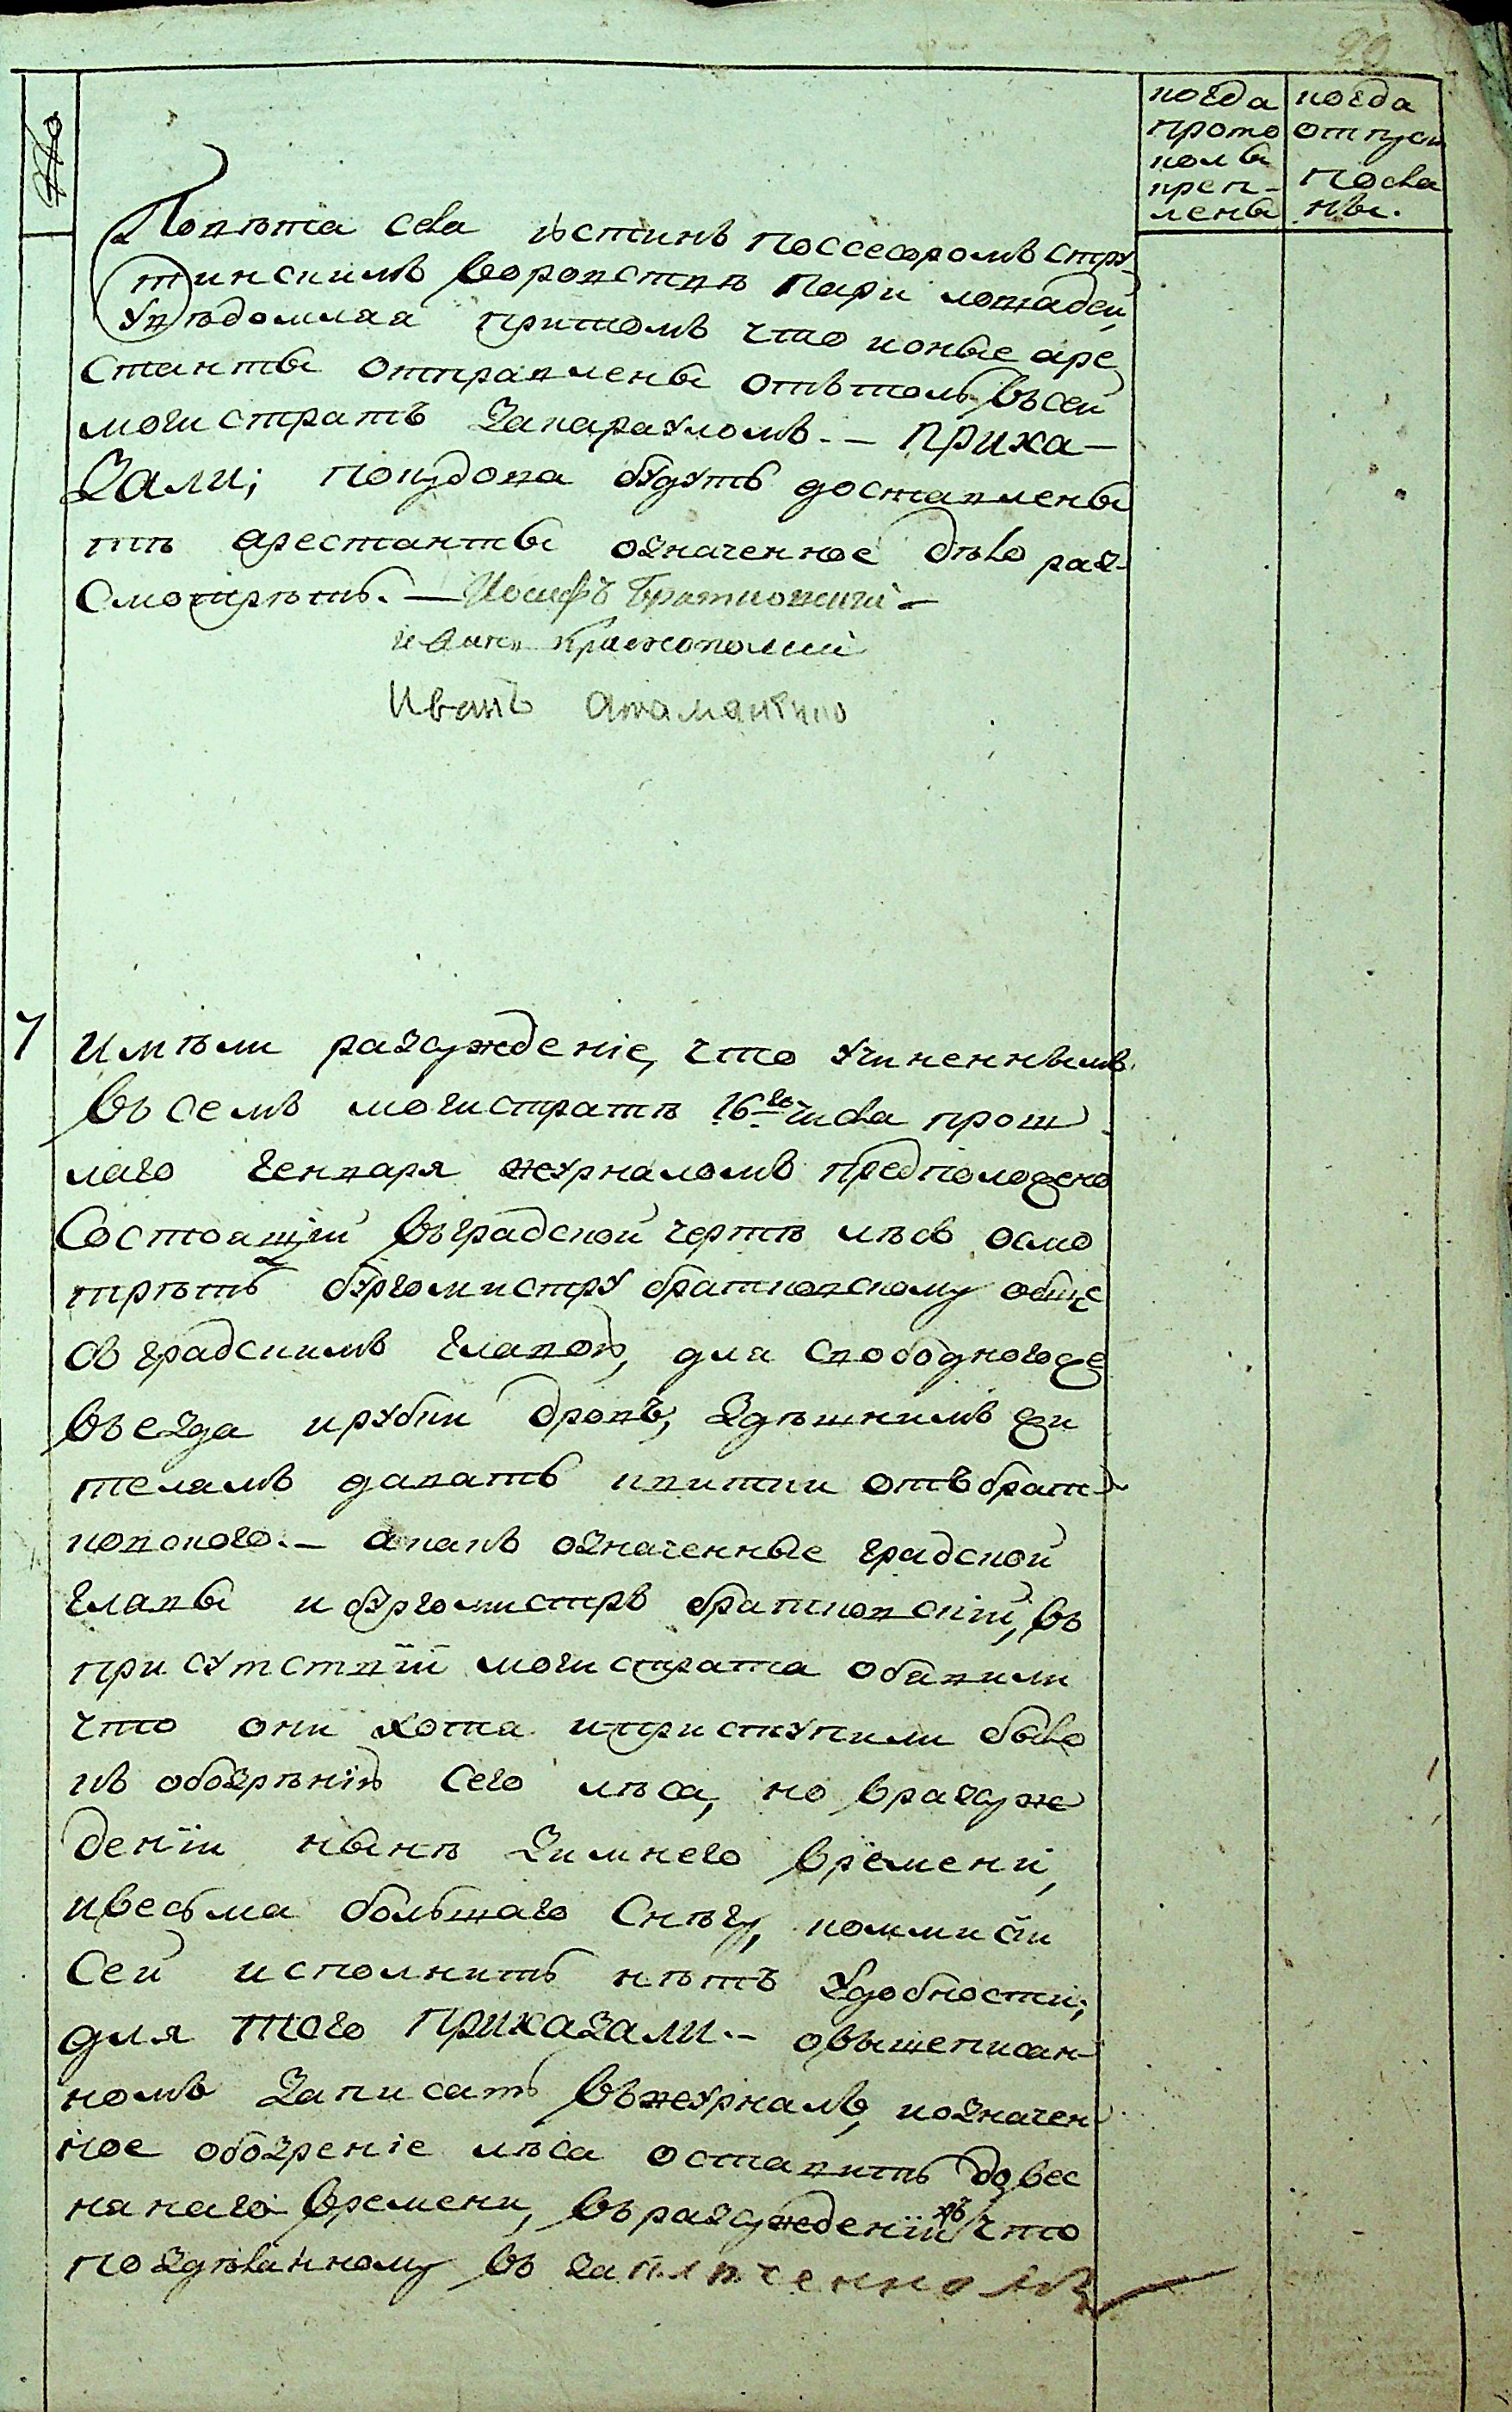 20
когда
прото
колъ
креп-
ленъ
когда
отпуск
посла
ны.
№
Повѣта села Юстинъ поссесоромъ Стру
тинскимъ воровствѣ пари лошадей,
увѣдомляя притомъ что ионые аре
станты отправлены отътоль въсей
магистратъ закарауломъ. — Прика-
зали; покудова будутъ доставлены
тѣ арестанты означенное дѣло раз-
смотрѣть. — Иосифъ Братковскій —
Иванъ
Иванъ Атаманенко
7
Имѣли разсужденіе, что учиненнымъ
въсемъ магистратѣ 16го числа прош
лаго генваря журналомъ предположено
состоящій въградской чертѣ лѣсъ осмо
трѣть бургомистру братковскому обще
съ градскимъ главою, для свободногоже
въезда ирубки дровъ, здѣшнимъ жи
телямъ давать квитки отъ брат-
ковского. — акакъ означенные градской
главы и бургомистръ братковскій, въ
присутствіи магистрата обявили
что они хотя иприступили было
къ обозрѣнію сего лѣса, но вразсуж
деніи нынѣ зимнего времени,
ивесьма большаго снѣгу, коммисіи
сей исполнить нѣтъ удобности;
для того приказали. — овышеписан-
номъ записать въжурналъ, иозначен
ное обозреніе лѣса оставить довес
наного времени, въразсужденіи что
поздѣланному въ